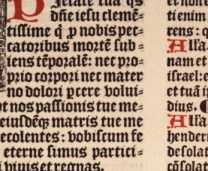 Pietate tua q̃s
dñe iesu clemẽ-
tissime q̃ p nobis pec-
catoribus mortẽ sub-
iens tẽporalẽ: nec pro-
prio corpori nec mater
no dolori pcere volui-
t nos passionis tue me-
eiusdẽq; matris tue me
recolentes: vobiscum fe
eterne simus partici-
i viuis et regnas.
et nom
tienim
rens: q
Alla
nam et
israel: e
et tuã i
dius.
Alla
hender
de sola
cõsolat